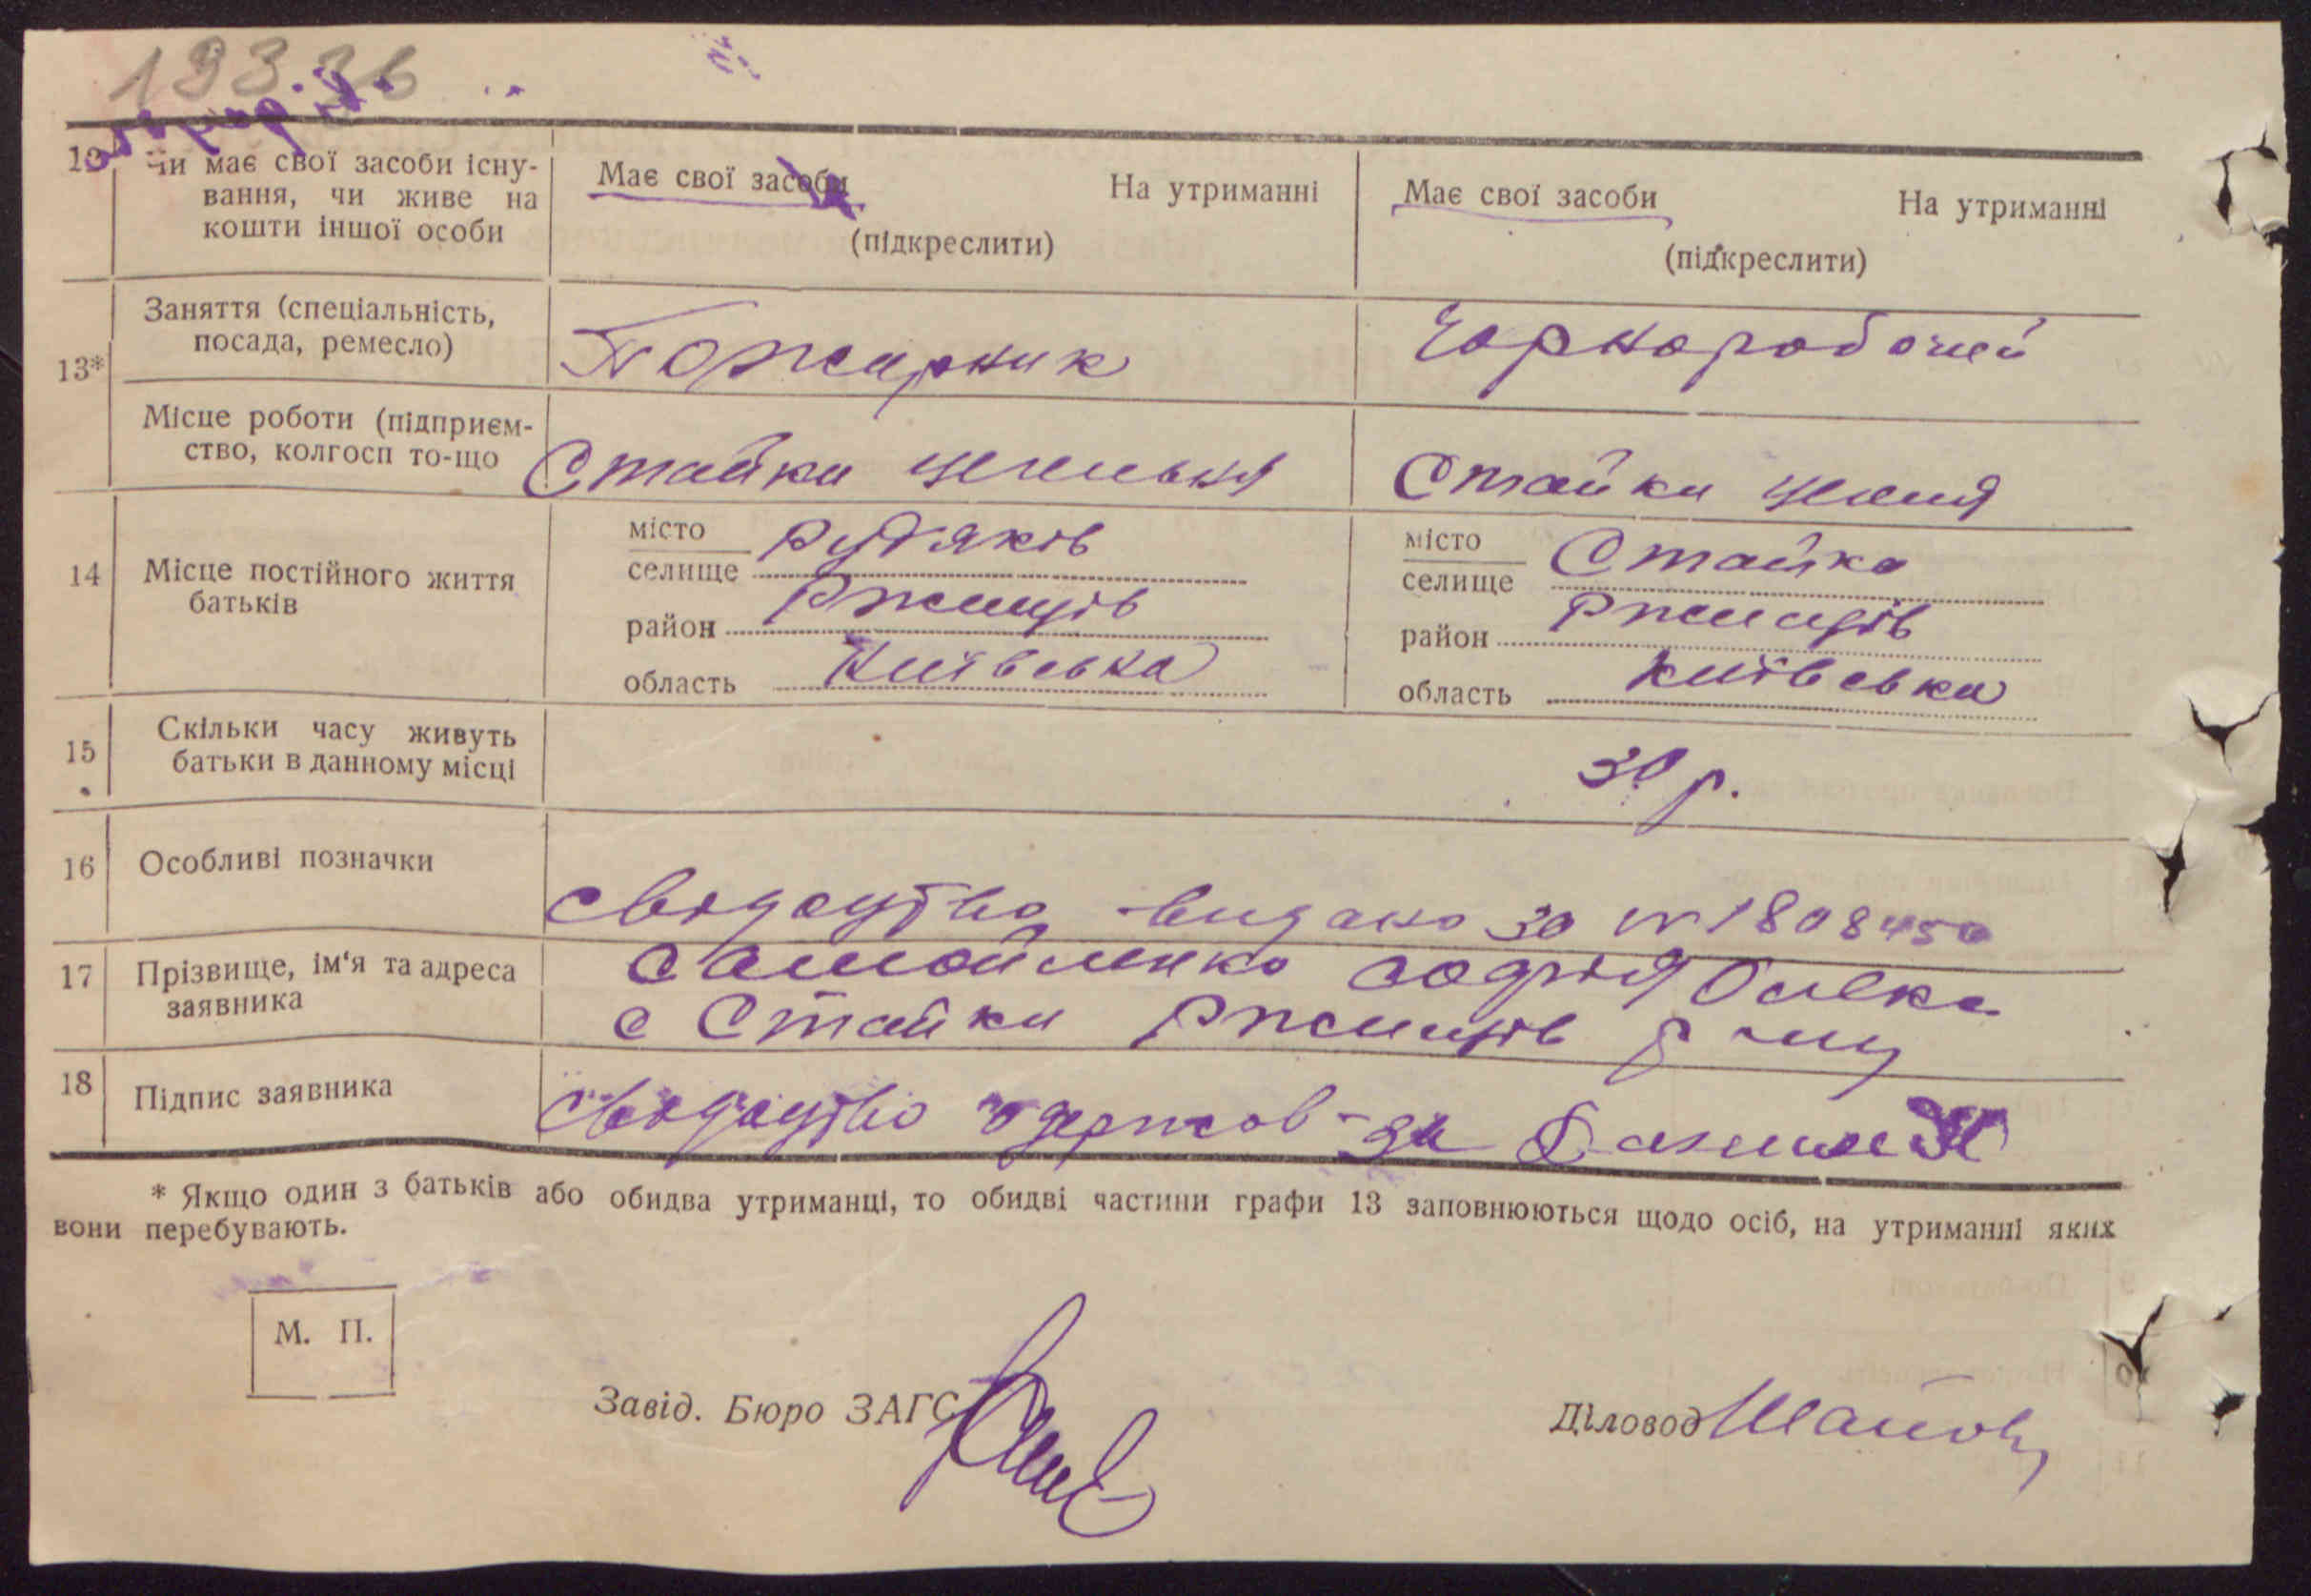 193 36
12 Чи має свої засоби існу-
вання, чи живе на
кошти іншої особи
Має свої засоби На утриманні
(підкреслити)
Має свої засоби На утриманні
(підкреслити)
13*
Заняття (спеціальність,
посада, ремесло)
Пожарник
Чорноробочей
Місце роботи (підприєм-
ство, колгосп то-що
Стайки цегельня
Стайки
14 Місце постійного життя
батьків
місто Рудяків
селище
район Ржищів
область Київська
місто Стайки
селище
район Ржищів
область Київська
15 Скільки часу живуть
батьки в данному місці
30 р.
16 Особливі позначки
свидоцтво видано за № 1808450
17 Прізвище, ім'я та адреса
заявника
Самойленко Софія
с Стайки Ржищів р
18 Підпис заявника
свидоцтво одержав
* Якщо один з батьків або обидва утриманці, то обидві частини графи 13 заповнюються щодо осіб, на утриманні яких
вони перебувають.
М. П.
Завід. Бюро ЗАГС
Діловод